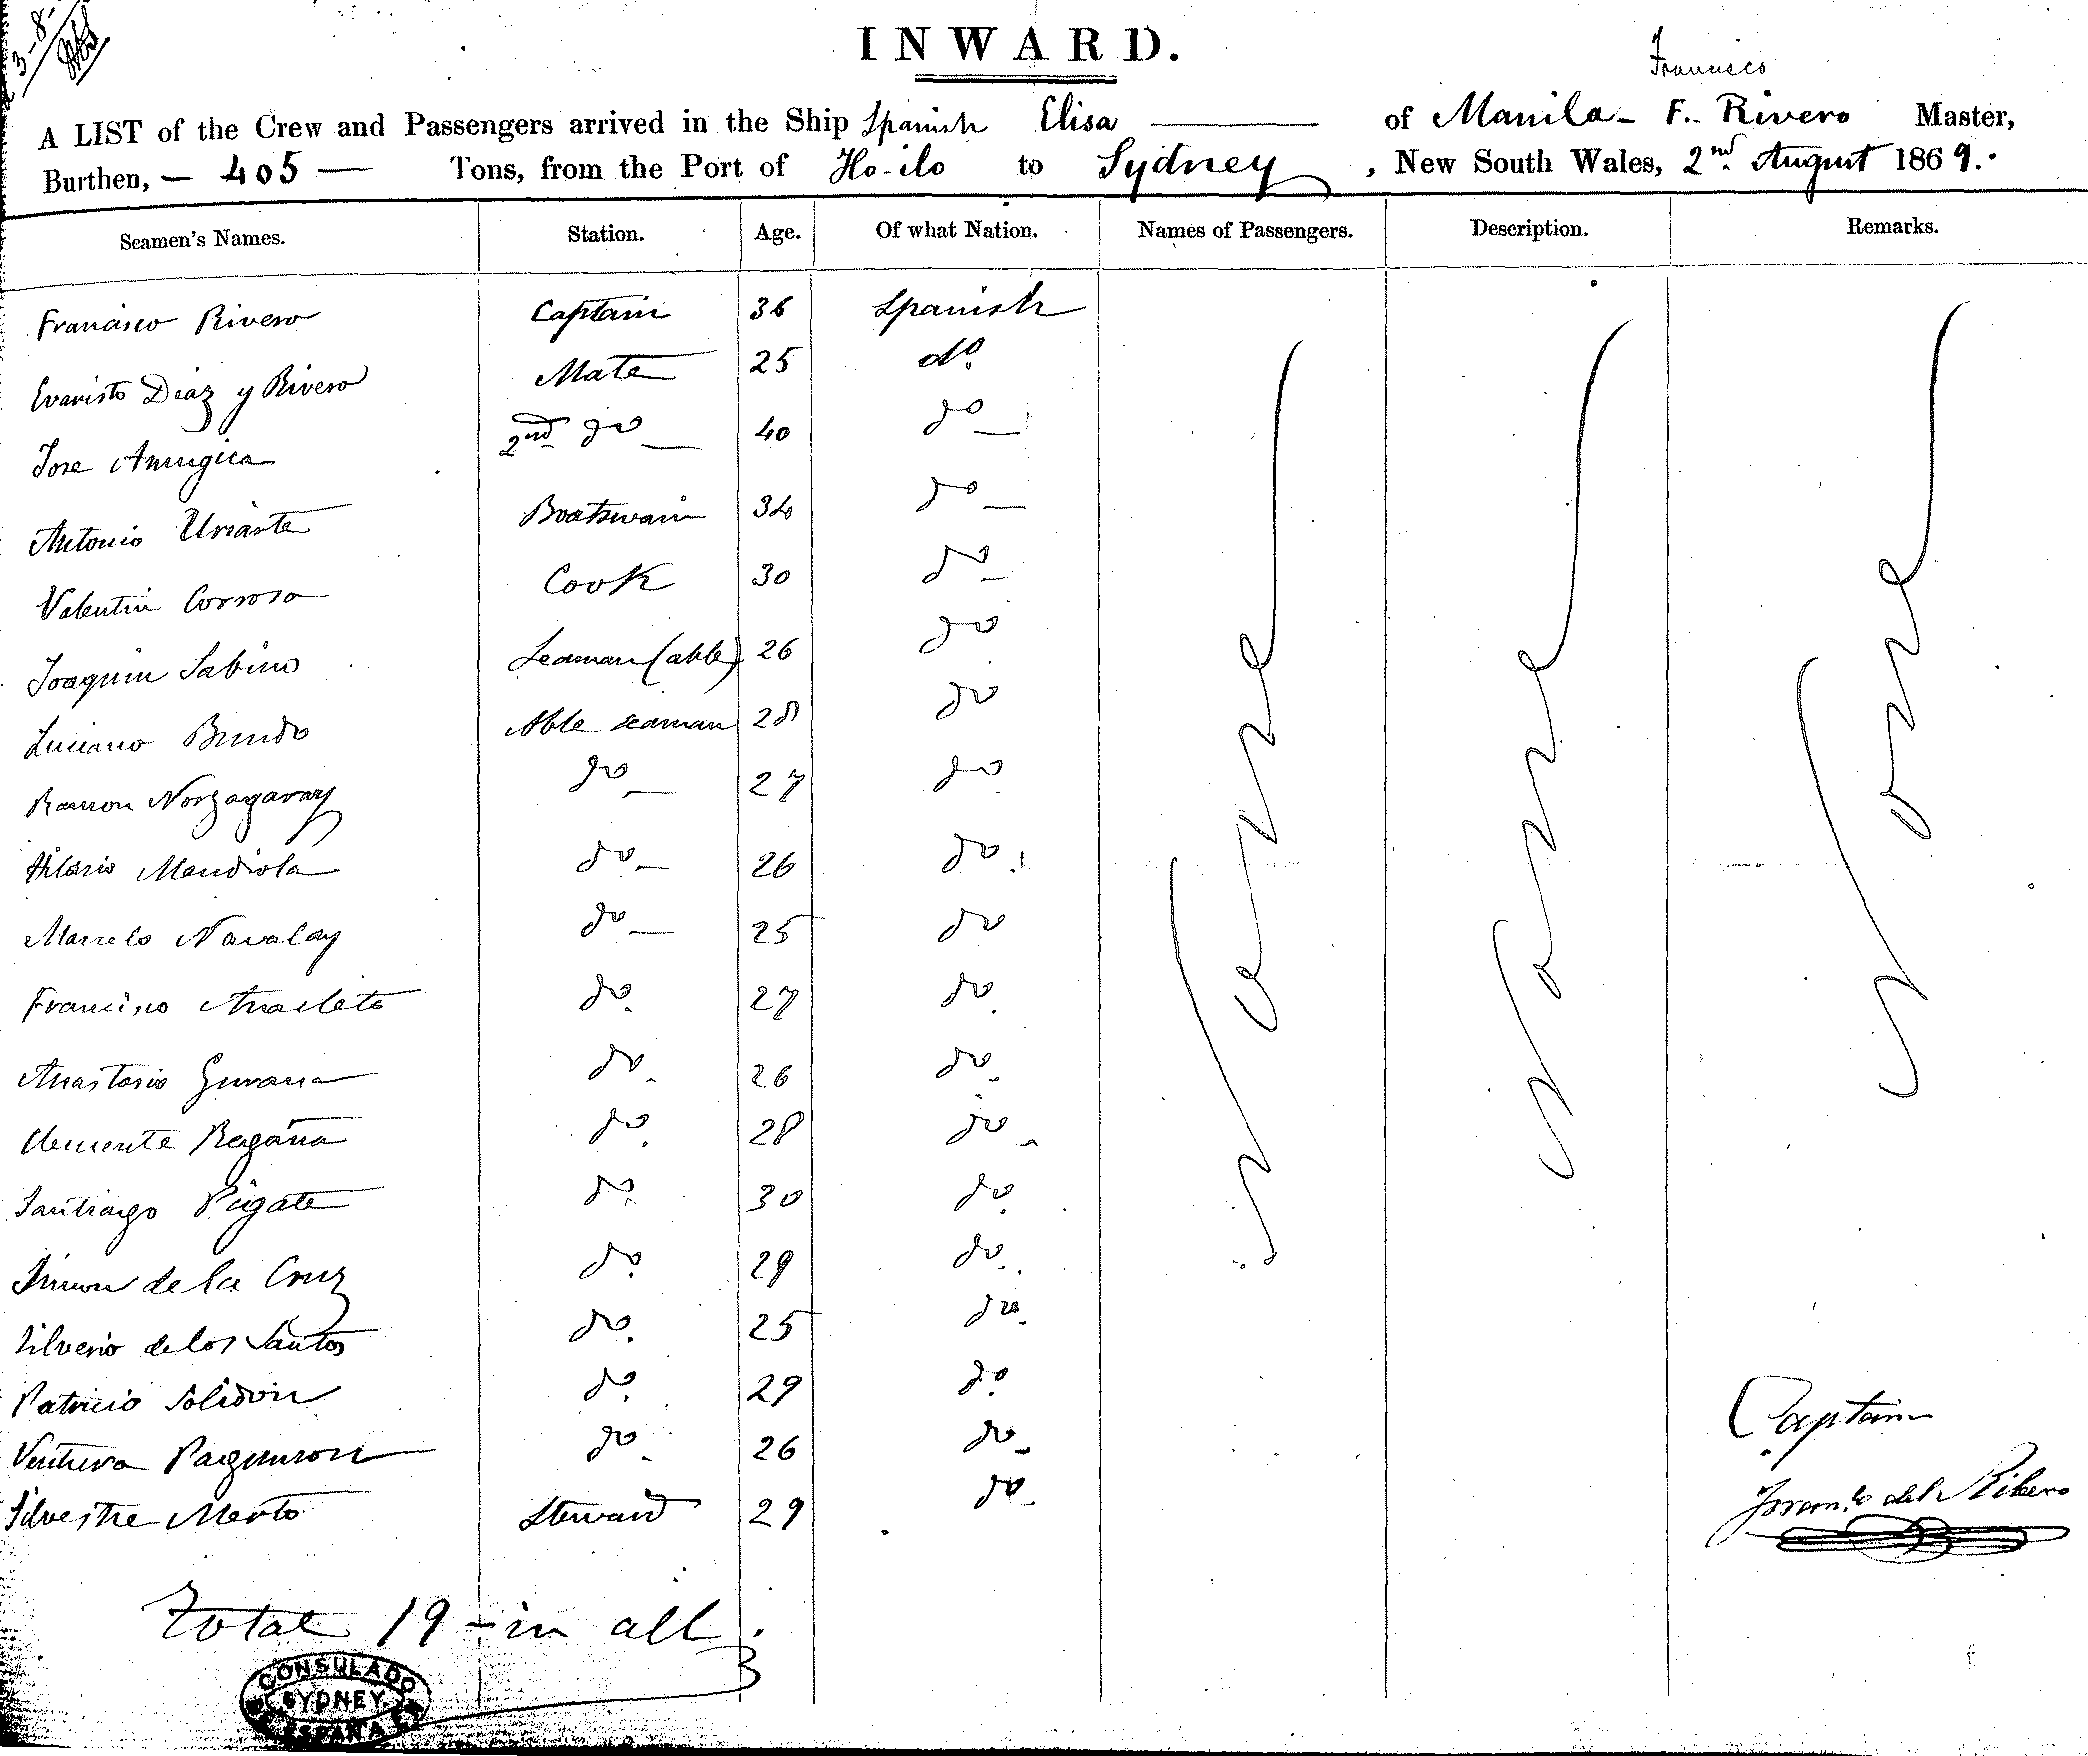 3-8-
INWARD.
Francisco
A LIST of the Crew and Passengers arrived in the Ship Spanish Elisa of Manila - F. Rivero Master,
Burthen, - 405 - Tons, from the Port of Ho-ilo to Sydney, New South Wales, 2nd August 1869.
Seamen's Names. Station. Age. Of what Nation. Names of Passengers. Description. Remarks.
Francisco Rivero Captain 36 Spanish
Evaristo Diaz y Rivero Mate 25 do.
Jose 2nd do 40 do
Antonio Uriarte Boatswain 34 do
Valentin Corrosa Cook 30 do
Joaquin Sabino Seaman (able) 26 do
Luciano Brindo Able seaman 28 do
Ramon Norzagaray do 27 do
Hilario Mendiola do 26 do
Marcelo Navalay do 25 do
Francisco Anacleto do. 27 do.
Anastasio Guvana do. 26 do.
Clemente Regaña do. 28 do
Santiago Pigate do. 30 do.
Simon de la Cruz do. 29 do.
Silverio de los Santos do. 25 do.
Patricio Solidon do. 29 do.
Ventura Pagunson do. 26 do.
Silvestre Merto Steward 29 do.
None None None
Captain
Franco del Ribero
Total 19 - in all.
CONSULADO
SYDNEY.
ESPAÑA